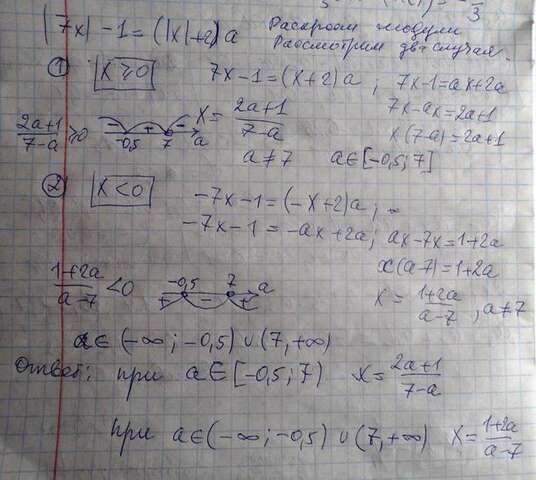 |7x| - 1 = (|x| + 2) a Раскроем модули
Рассмотрим два случая.
① x ≥ 0 7x-1=(x+2)a ; 7x-1=ax+2a
7x-ax=2a+1
x(7-a)=2a+1
(2a+1)/(7-a) ≥ 0 - + - -0,5 7 a x = (2a+1)/(7-a)
a≠7 a∈[-0,5; 7]
② x < 0 -7x-1=(-x+2)a ;
-7x-1=-ax+2a; ax-7x=1+2a
x(a-7)=1+2a
(1+2a)/(a-7) < 0 -0,5 7 a + - + x = (1+2a)/(a-7), a≠7
a∈(-∞; -0,5) ∪ (7, +∞)
Ответ: при a∈[-0,5; 7) x = (2a+1)/(7-a)
при a∈(-∞; -0,5) ∪ (7, +∞) x = (1+2a)/(a-7)